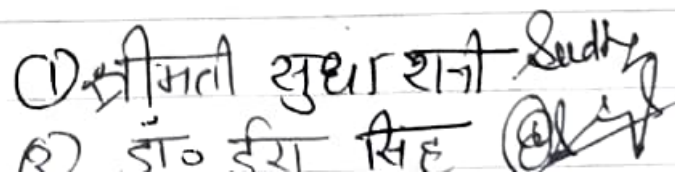 ① श्रीमती सुधा रानी Sudha
② डॉ० ईरा सिंह